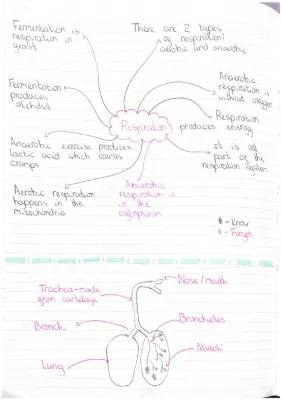 Fermentation is
respiration in
yeast
There are 2 types
of respiration:
aerobic and anaerobic
Fermentation
produces
alchohol
Anaerobic
respiration is
without oxygen
Respiration
Respiration
produces energy
Anaerobic exercise produces
lactic acid which causes
cramps
It is all
part of the
respiration system
Aerobic respiration
happens in the
mitochondria
Anaerobic
respiration is
in the
cytoplasm
- Know
- Forgot
Trachea - made
from cartilage
Nose/mouth
Branch
Bronchioles
Lung
Alveoli